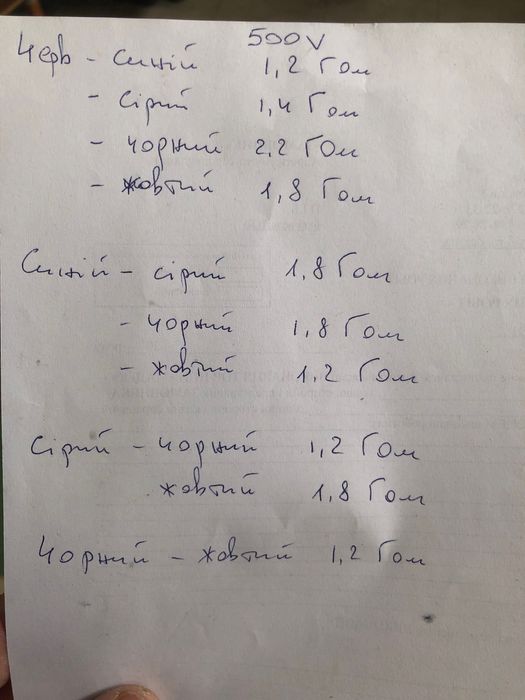 500V
Черв - синій 1,2 Гом
- сірий 1,4 Гом
- чорний 2,2 ГОм
- жовтий 1,8 Гом
Синій - сірий 1,8 Гом
- чорний 1,8 Гом
- жовтий 1,2 Гом
Сірий - чорний 1,2 Гом
жовтий 1,8 Гом
Чорний - жовтий 1,2 Гом